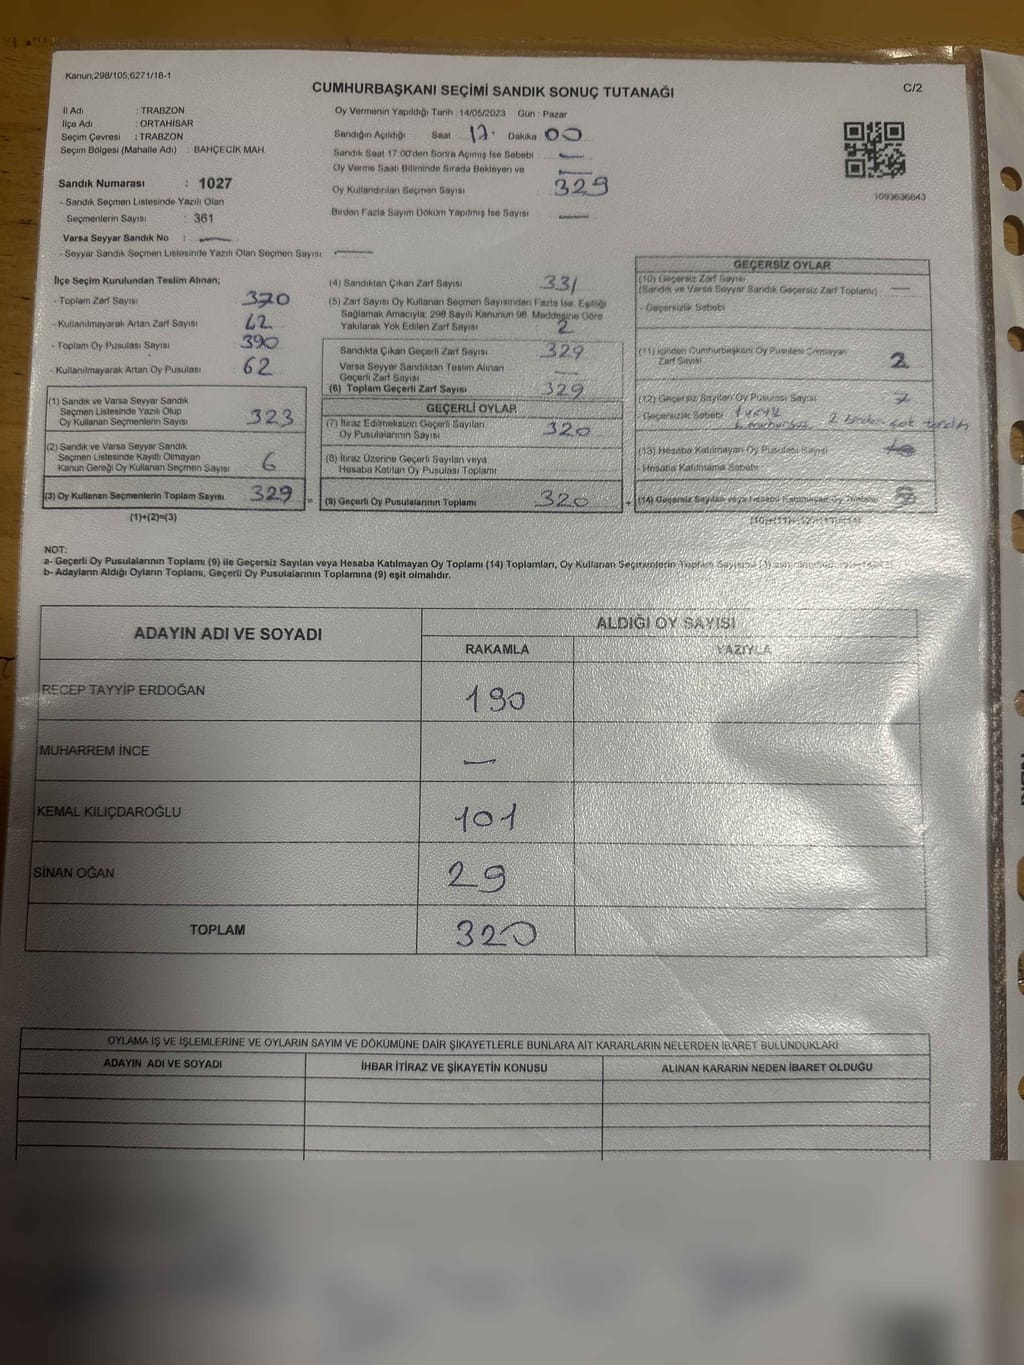 Kanun;298/105;6271/18-1
CUMHURBAŞKANI SEÇİMİ SANDIK SONUÇ TUTANAĞI
C/2
İl Adı : TRABZON
İlçe Adı : ORTAHİSAR
Seçim Çevresi : TRABZON
Seçim Bölgesi (Mahalle Adı) : BAHÇECİK MAH.
Oy Vermenin Yapıldığı Tarih : 14/05/2023 Gün : Pazar
Sandığın Açıldığı Saat 17. Dakika 00
Sandık Saat 17:00'den Sonra Açılmış İse Sebebi —
Oy Verme Saati Bitiminde Sırada Bekleyen ve —
Oy Kullandırılan Seçmen Sayısı 329
Birden Fazla Sayım Döküm Yapılmış İse Sayısı —
1093636843
Sandık Numarası : 1027
- Sandık Seçmen Listesinde Yazılı Olan
Seçmenlerin Sayısı : 361
Varsa Seyyar Sandık No : —
- Seyyar Sandık Seçmen Listesinde Yazılı Olan Seçmen Sayısı: —
İlçe Seçim Kurulundan Teslim Alınan;
- Toplam Zarf Sayısı 370
- Kullanılmayarak Artan Zarf Sayısı 42
- Toplam Oy Pusulası Sayısı 390
- Kullanılmayarak Artan Oy Pusulası 62
(1) Sandık ve Varsa Seyyar Sandık
Seçmen Listesinde Yazılı Olup
Oy Kullanan Seçmenlerin Sayısı 323
(2) Sandık ve Varsa Seyyar Sandık
Seçmen Listesinde Kayıtlı Olmayan
Kanun Gereği Oy Kullanan Seçmen Sayısı 6
(3) Oy Kullanan Seçmenlerin Toplam Sayısı 329 =
(1)+(2)=(3)
(4) Sandıktan Çıkan Zarf Sayısı 331
(5) Zarf Sayısı Oy Kullanan Seçmen Sayısından Fazla İse, Eşitliği
Sağlamak Amacıyla; 298 Sayılı Kanunun 98. Maddesine Göre
Yakılarak Yok Edilen Zarf Sayısı 2
Sandıkta Çıkan Geçerli Zarf Sayısı 329
Varsa Seyyar Sandıktan Teslim Alınan
Geçerli Zarf Sayısı —
(6) Toplam Geçerli Zarf Sayısı 329
GEÇERLİ OYLAR
(7) İtiraz Edilmeksizin Geçerli Sayılan
Oy Pusulalarının Sayısı 320
(8) İtiraz Üzerine Geçerli Sayılan veya
Hesaba Katılan Oy Pusulası Toplamı
(9) Geçerli Oy Pusulalarının Toplamı 320 +
GEÇERSİZ OYLAR
(10) Geçersiz Zarf Sayısı
(Sandık ve Varsa Seyyar Sandık Geçersiz Zarf Toplamı) —
- Geçersizlik Sebebi
(11) İçinden Cumhurbaşkanı Oy Pusulası Çıkmayan
Zarf Sayısı 2
(12) Geçersiz Sayılan Oy Pusulası Sayısı 7
- Geçersizlik Sebebi
(13) Hesaba Katılmayan Oy Pusulası Sayısı
- Hesaba Katılmama Sebebi
(14) Geçersiz Sayılan veya Hesaba Katılmayan Oy Toplamı
NOT:
a- Geçerli Oy Pusulalarının Toplamı (9) ile Geçersiz Sayılan veya Hesaba Katılmayan Oy Toplamı (14) Toplamları, Oy Kullanan Seçmenlerin Toplam Sayısına
b- Adayların Aldığı Oyların Toplamı, Geçerli Oy Pusulalarının Toplamına (9) eşit olmalıdır.
ADAYIN ADI VE SOYADI ALDIĞI OY SAYISI
RAKAMLA YAZIYLA
RECEP TAYYİP ERDOĞAN 190
MUHARREM İNCE —
KEMAL KILIÇDAROĞLU 101
SİNAN OĞAN 29
TOPLAM 320
OYLAMA İŞ VE İŞLEMLERİNE VE OYLARIN SAYIM VE DÖKÜMÜNE DAİR ŞİKAYETLERLE BUNLARA AİT KARARLARIN NELERDEN İBARET BULUNDUKLARI
ADAYIN ADI VE SOYADI İHBAR İTİRAZ VE ŞİKAYETİN KONUSU ALINAN KARARIN NEDEN İBARET OLDUĞU